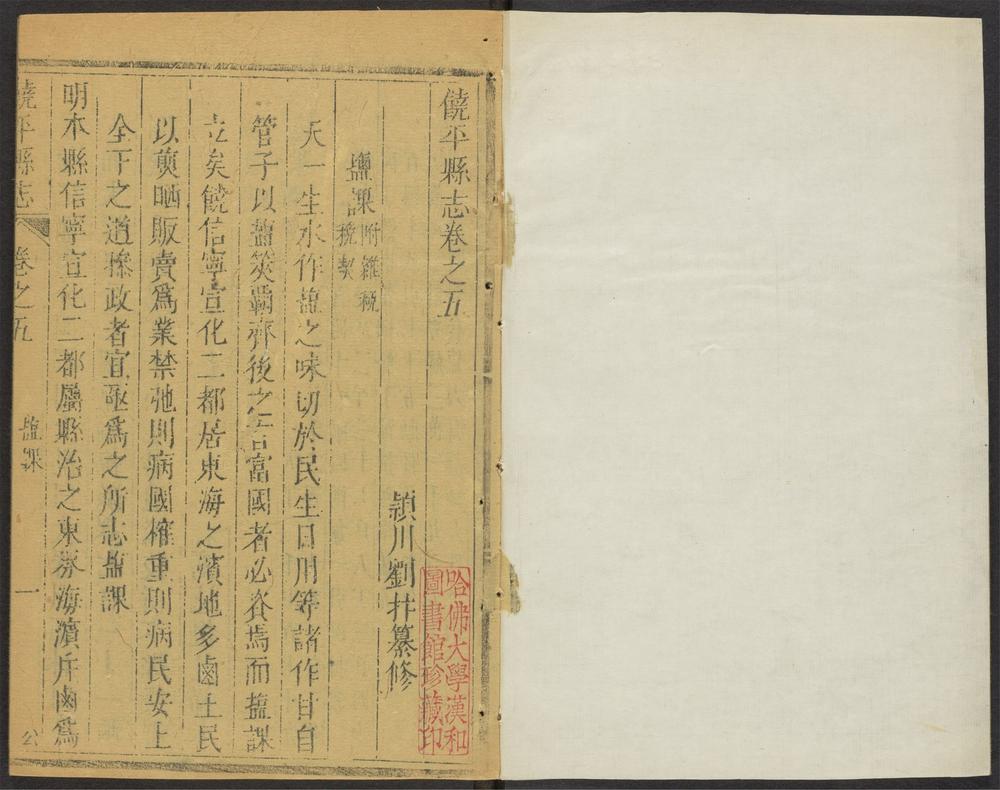 饒平縣志卷之五
潁川劉抃纂修
鹽課附雜稅
稅契
天一生水作鹽之味切於民生日用等諸作甘自
管子以鹽筴覇齊後之言富國者必資焉而鹽課
立矣饒信寧宣化二都居東海之濱地多鹵土民
以煎晒販賣爲業禁弛則病國榷重則病民安上
全下之道操政者宜亟爲之所志鹽課
明本縣信寧宣化二都屬縣治之東旁海濱斥鹵爲
饒平縣志
卷之五
鹽課
一
公
哈佛大學漢和
圖書館珍藏印